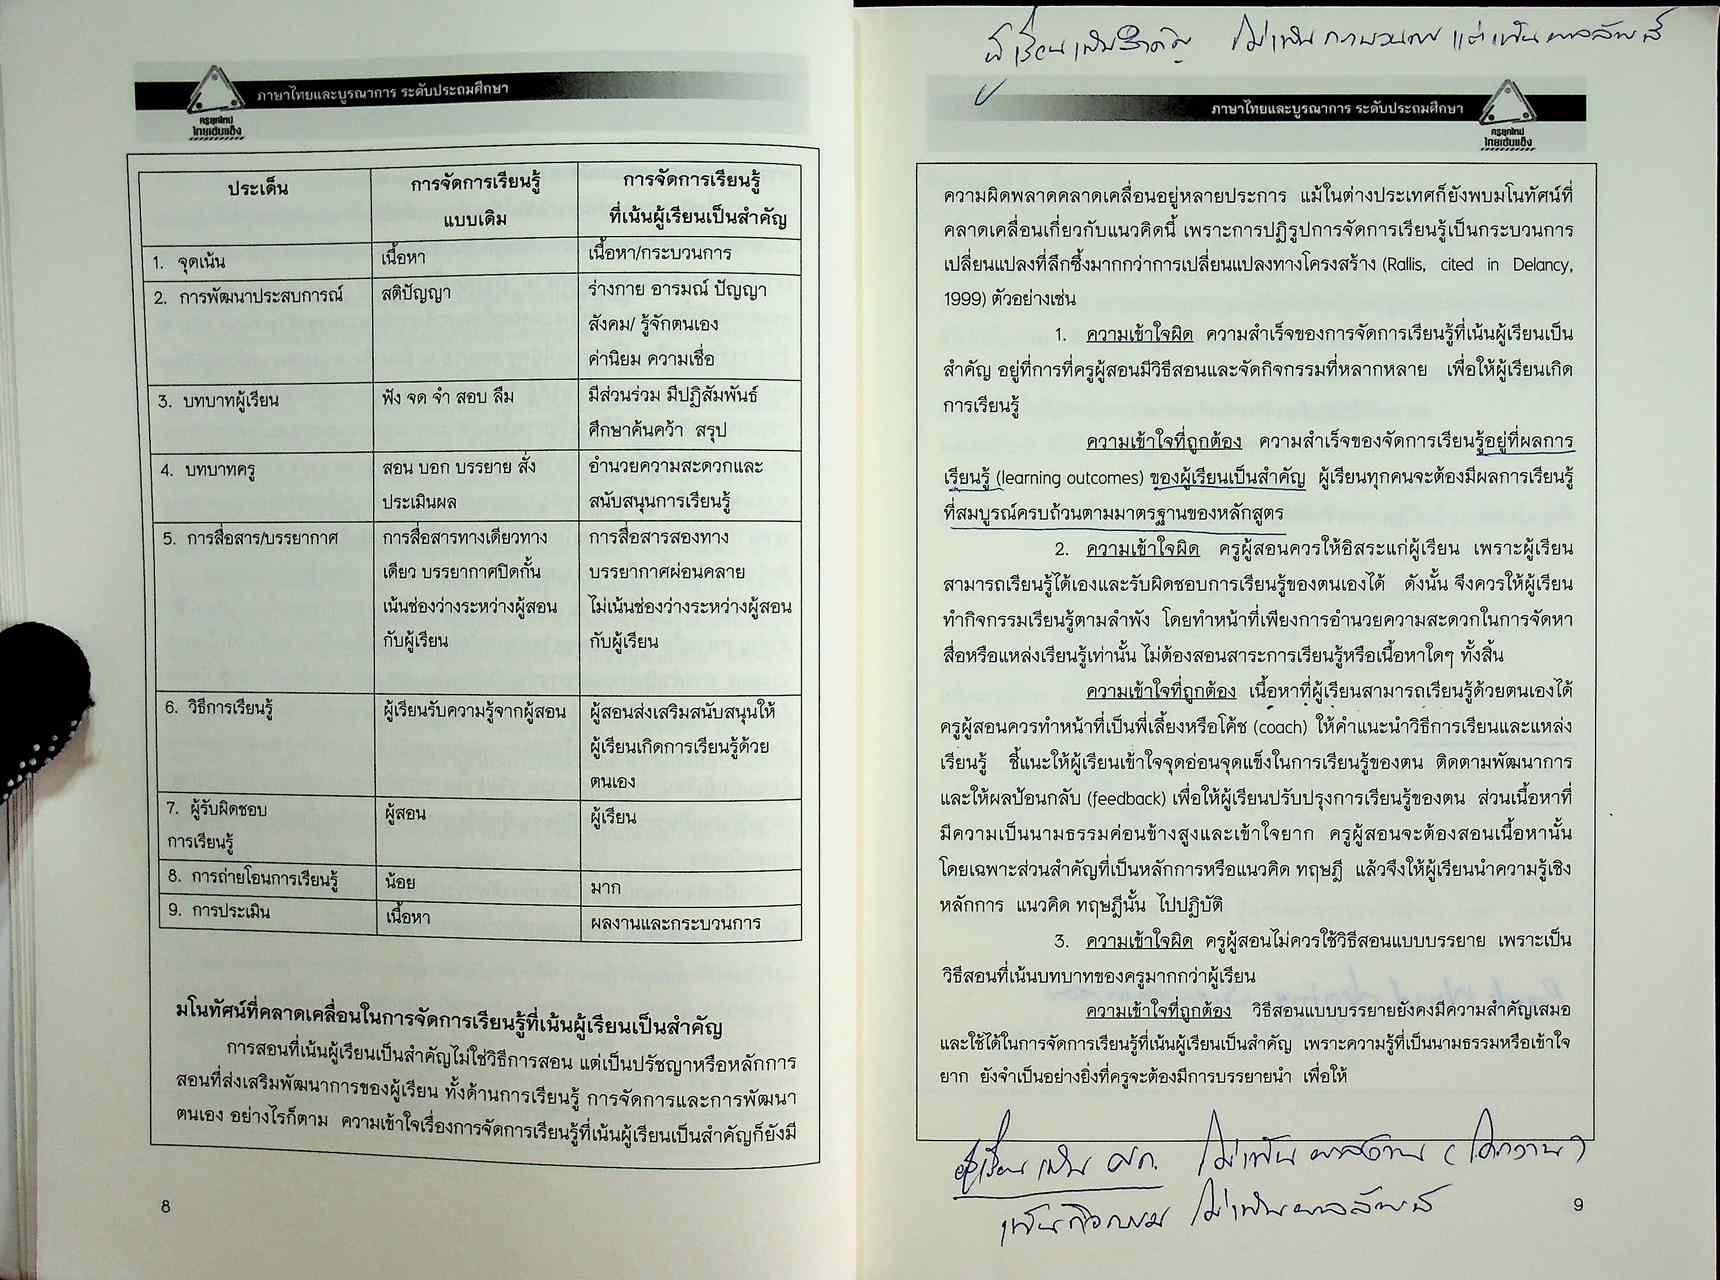 ภาษาไทยและบูรณาการ ระดับประถมศึกษา
ครูยุคใหม่
ไทยเข้มแข็ง
ประเด็น
การจัดการเรียนรู้
แบบเดิม
การจัดการเรียนรู้
ที่เน้นผู้เรียนเป็นสำคัญ
1. จุดเน้น
เนื้อหา
เนื้อหา/กระบวนการ
2. การพัฒนาประสบการณ์
สติปัญญา
ร่างกาย อารมณ์ ปัญญา
สังคม/ รู้จักตนเอง
ค่านิยม ความเชื่อ
3. บทบาทผู้เรียน
ฟัง จด จำ สอบ ลืม
มีส่วนร่วม มีปฏิสัมพันธ์
ศึกษาค้นคว้า สรุป
4. บทบาทครู
สอน บอก บรรยาย สั่ง
ประเมินผล
อำนวยความสะดวกและ
สนับสนุนการเรียนรู้
5. การสื่อสาร/บรรยากาศ
การสื่อสารทางเดียวทาง
เดียว บรรยากาศปิดกั้น
เน้นช่องว่างระหว่างผู้สอน
กับผู้เรียน
การสื่อสารสองทาง
บรรยากาศผ่อนคลาย
ไม่เน้นช่องว่างระหว่างผู้สอน
กับผู้เรียน
6. วิธีการเรียนรู้
ผู้เรียนรับความรู้จากผู้สอน
ผู้สอนส่งเสริมสนับสนุนให้
ผู้เรียนเกิดการเรียนรู้ด้วย
ตนเอง
7. ผู้รับผิดชอบ
การเรียนรู้
ผู้สอน
ผู้เรียน
8. การถ่ายโอนการเรียนรู้
น้อย
มาก
9. การประเมิน
เนื้อหา
ผลงานและกระบวนการ
มโนทัศน์ที่คลาดเคลื่อนในการจัดการเรียนรู้ที่เน้นผู้เรียนเป็นสำคัญ
การสอนที่เน้นผู้เรียนเป็นสำคัญไม่ใช่วิธีการสอน แต่เป็นปรัชญาหรือหลักการ
สอนที่ส่งเสริมพัฒนาการของผู้เรียน ทั้งด้านการเรียนรู้ การจัดการและการพัฒนา
ตนเอง อย่างไรก็ตาม ความเข้าใจเรื่องการจัดการเรียนรู้ที่เน้นผู้เรียนเป็นสำคัญก็ยังมี
8
ผู้เรียนเป็นสำคัญ ไม่เน้นกระบวนการ แต่เน้นผลลัพธ์
ภาษาไทยและบูรณาการ ระดับประถมศึกษา
ครูยุคใหม่
ไทยเข้มแข็ง
ความผิดพลาดคลาดเคลื่อนอยู่หลายประการ แม้ในต่างประเทศก็ยังพบมโนทัศน์ที่
คลาดเคลื่อนเกี่ยวกับแนวคิดนี้ เพราะการปฏิรูปการจัดการเรียนรู้เป็นกระบวนการ
เปลี่ยนแปลงที่ลึกซึ้งมากกว่าการเปลี่ยนแปลงทางโครงสร้าง (Rallis, cited in Delancy,
1999) ตัวอย่างเช่น
1. ความเข้าใจผิด ความสำเร็จของการจัดการเรียนรู้ที่เน้นผู้เรียนเป็น
สำคัญ อยู่ที่การที่ครูผู้สอนมีวิธีสอนและจัดกิจกรรมที่หลากหลาย เพื่อให้ผู้เรียนเกิด
การเรียนรู้
ความเข้าใจที่ถูกต้อง ความสำเร็จของจัดการเรียนรู้อยู่ที่ผลการ
เรียนรู้ (learning outcomes) ของผู้เรียนเป็นสำคัญ ผู้เรียนทุกคนจะต้องมีผลการเรียนรู้
ที่สมบูรณ์ครบถ้วนตามมาตรฐานของหลักสูตร
2. ความเข้าใจผิด ครูผู้สอนควรให้อิสระแก่ผู้เรียน เพราะผู้เรียน
สามารถเรียนรู้ได้เองและรับผิดชอบการเรียนรู้ของตนเองได้ ดังนั้น จึงควรให้ผู้เรียน
ทำกิจกรรมเรียนรู้ตามลำพัง โดยทำหน้าที่เพียงการอำนวยความสะดวกในการจัดหา
สื่อหรือแหล่งเรียนรู้เท่านั้น ไม่ต้องสอนสาระการเรียนรู้หรือเนื้อหาใดๆ ทั้งสิ้น
ความเข้าใจที่ถูกต้อง เนื้อหาที่ผู้เรียนสามารถเรียนรู้ด้วยตนเองได้
ครูผู้สอนควรทำหน้าที่เป็นพี่เลี้ยงหรือโค้ช (coach) ให้คำแนะนำวิธีการเรียนและแหล่ง
เรียนรู้ ชี้แนะให้ผู้เรียนเข้าใจจุดอ่อนจุดแข็งในการเรียนรู้ของตน ติดตามพัฒนาการ
และให้ผลป้อนกลับ (feedback) เพื่อให้ผู้เรียนปรับปรุงการเรียนรู้ของตน ส่วนเนื้อหาที่
มีความเป็นนามธรรมค่อนข้างสูงและเข้าใจยาก ครูผู้สอนจะต้องสอนเนื้อหานั้น
โดยเฉพาะส่วนสำคัญที่เป็นหลักการหรือแนวคิด ทฤษฎี แล้วจึงให้ผู้เรียนนำความรู้เชิง
หลักการ แนวคิด ทฤษฎีนั้น ไปปฏิบัติ
3. ความเข้าใจผิด ครูผู้สอนไม่ควรใช้วิธีสอนแบบบรรยาย เพราะเป็น
วิธีสอนที่เน้นบทบาทของครูมากกว่าผู้เรียน
ความเข้าใจที่ถูกต้อง วิธีสอนแบบบรรยายยังคงมีความสำคัญเสมอ
และใช้ได้ในการจัดการเรียนรู้ที่เน้นผู้เรียนเป็นสำคัญ เพราะความรู้ที่เป็นนามธรรมหรือเข้าใจ
ยาก ยังจำเป็นอย่างยิ่งที่ครูจะต้องมีการบรรยายนำ เพื่อให้
ผู้เรียนเป็น ศก. ไม่เน้นผลงาน (โครงงาน)
เน้นกิจกรรม ไม่เน้นผลลัพธ์
9